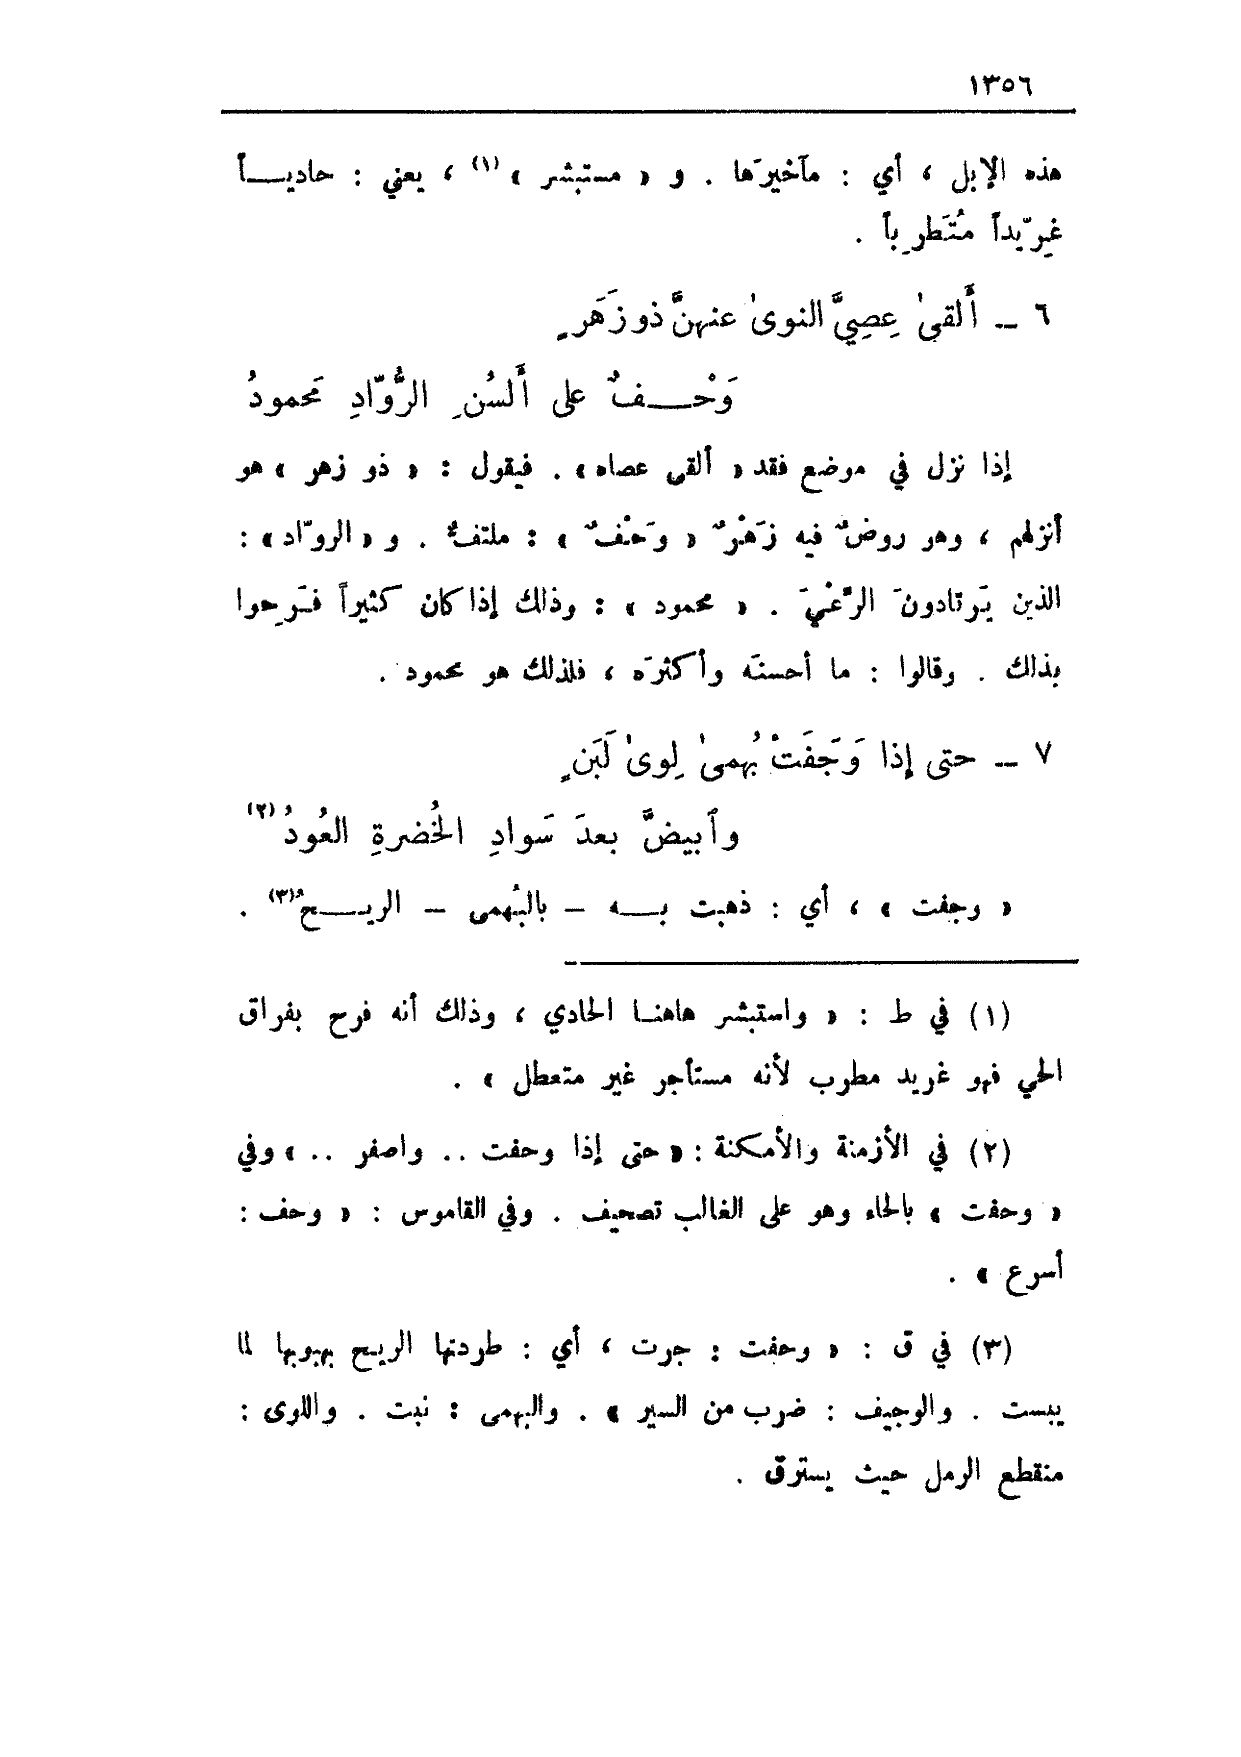 ١٣٥٦
هذه الإبل ، أي : مآخيرَها . و « مستبشر »(١) ، يعني : حاديـــاً
غِرّيداً مُتَطرِباً .
٦ ــ أَلقىٰ عِصِيَّ النوىٰ عنهنَّ ذو زَهَرٍ
وَحْـــفٌ على أَلسُنِ الرُّوّادِ مَحمودُ
إذا نزل في موضع فقد « ألقى عصاه » . فيقول : « ذو زهر » هو
أنزلهم ، وهو روضٌ فيه زَهْرٌ « وَحْفٌ » : ملتفٌّ . و « الروّاد » :
الذين يَرتادونَ الرَّعْيَ . « محمود » : وذلك إذا كان كثيراً فَرِحوا
بذلك . وقالوا : ما أحسنَه وأكثرَه ، فلذلك هو محمود .
٧ ــ حتى إذا وَجَفَتْ بُهمىٰ لِوىٰ لَبَنٍ
وٱبيضَّ بعدَ سَوادِ الخُضرةِ العُودُ(٢)
« وجفت » ، أي : ذهبت بـــه – بالبُهمى – الريـــحُ(٣) .
(١) في ط : « واستبشر هاهنـا الحادي ، وذلك أنه فرح بفراق
الحي فهو غريد مطرب لأنه مستأجر غير متعطل » .
(٢) في الأزمنة والأمكنة : « حتى إذا وحفت .. واصفر .. » وفي
« وحفت » بالحاء وهو على الغالب تصحيف . وفي القاموس : « وحف :
أسرع » .
(٣) في ق : « وحفت : جرت ، أي : طردتها الريح بهبوبها لما
يبست . والوجيف : ضرب من السير » . والبهمى : نبت . واللوى :
منقطع الرمل حيث يسترق .